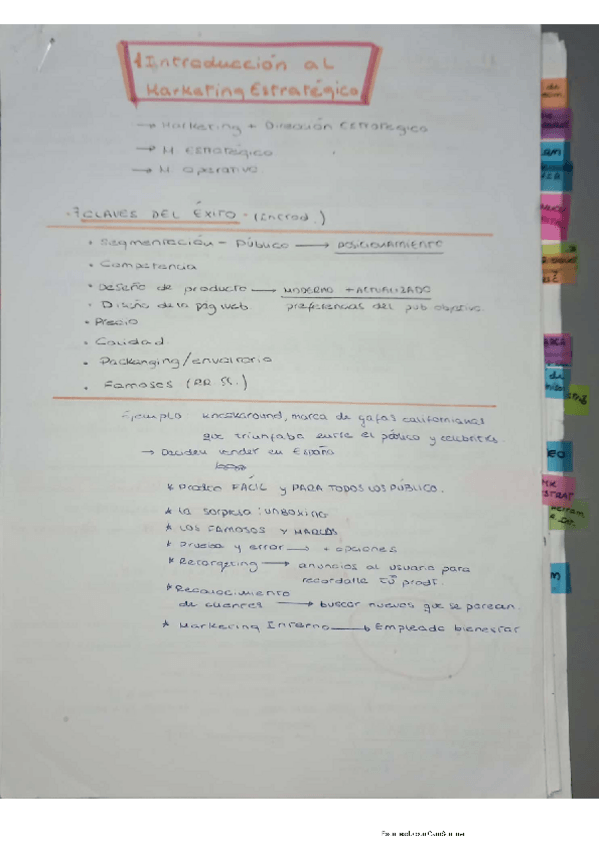 1 Introducción al
Marketing Estratégico
→ Marketing + Dirección Estratégico
→ M. Estratégico
→ M. Operativo
7 CLAVES DEL ÉXITO - (Introd.)
• Segmentación - Público → POSICIONAMIENTO
• Competencia
• Diseño de producto → MODERNO + ACTUALIZADO
• Diseño de la pág web preferencias del pub objetivo.
• Precio
• Calidad
• Packanging/envoltorio
• Famosos (RR SS.)
Ejemplo marca de gafas californiana
que triunfaba entre el público y celebrities.
→ Deciden vender en España
* FÁCIL y PARA TODOS LOS PÚBLICO.
* La sorpresa: UNBOXING
* LOS FAMOSOS Y MARCAS
* Prueba y error → + opciones
* Retargeting → anuncios al usuario para
recordalle tú prodt.
* Reconocimiento
de clientes → buscar nuevos que se parecan.
* Marketing Interno → Empleado bienestar